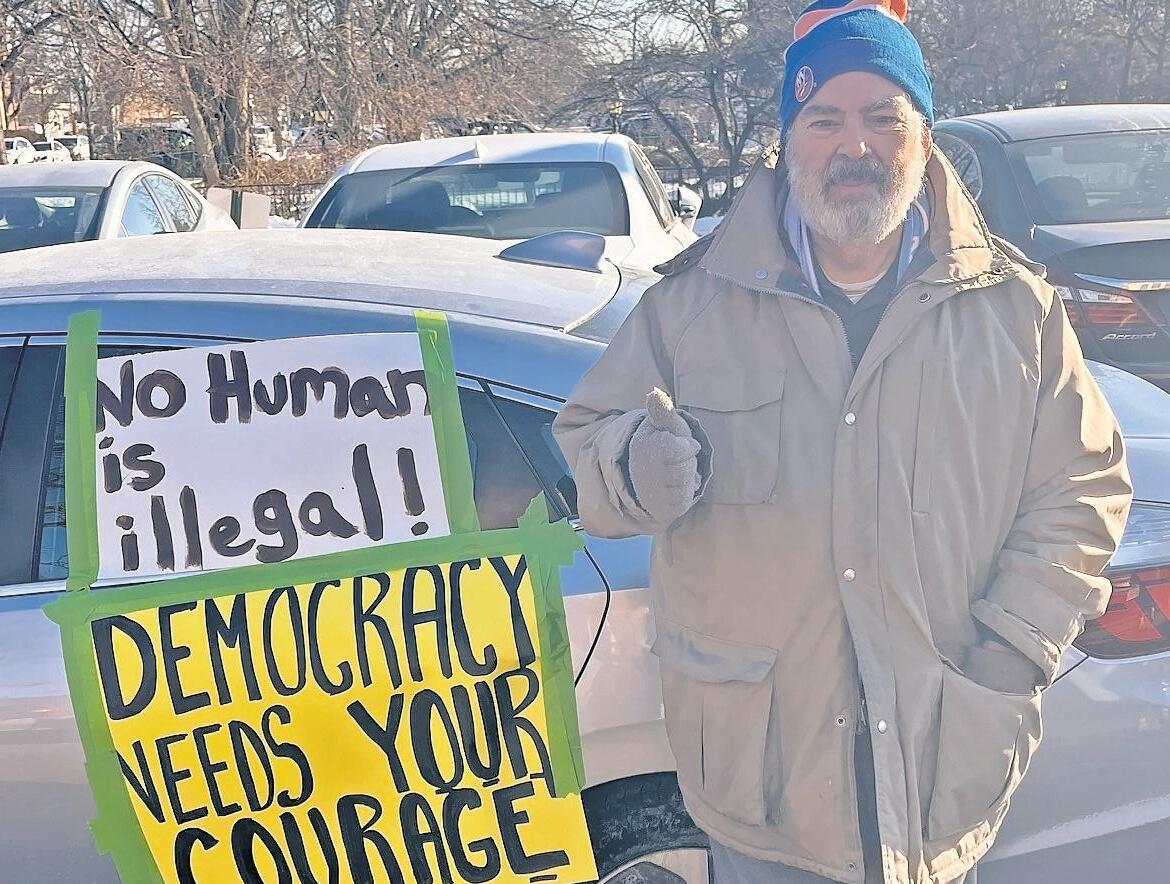 No Human
is
illegal!
DEMOCRACY
NEEDS YOUR
COURAGE
Accord